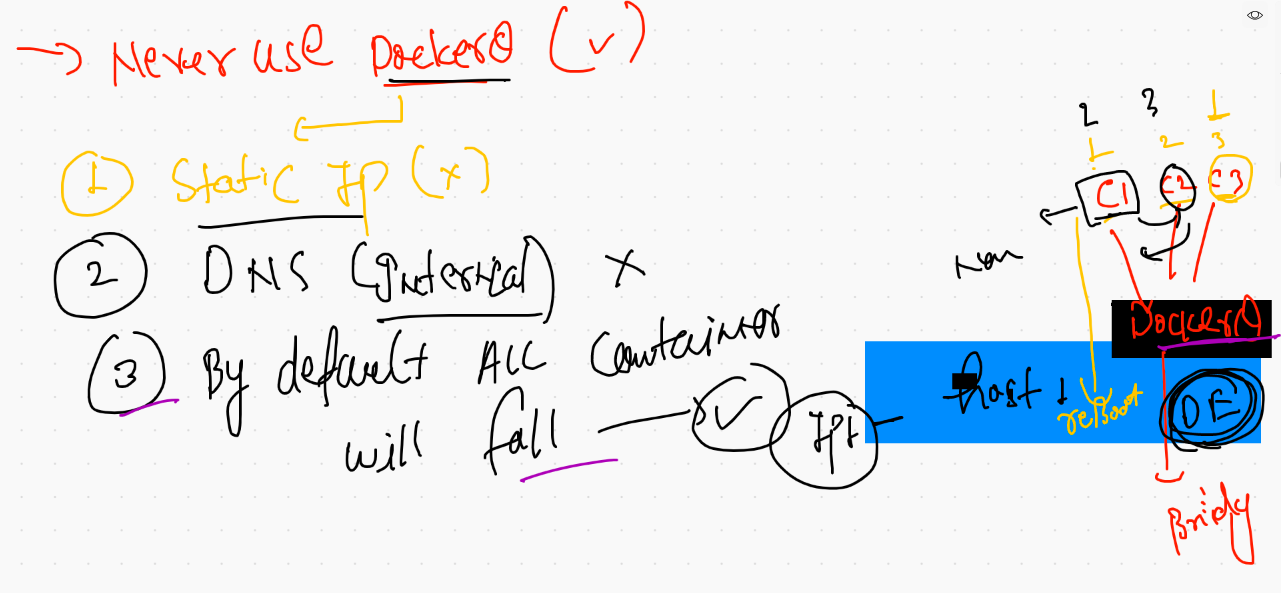 → Never use Docker0 (✓)
1 Static Ip (x)
2 DNS (Internal) x
3 By default All Container
will fall → ✓
2 3 1
1 2 3
C1 C2 C3
Docker0
host 1
reBoot
DE
Bridg